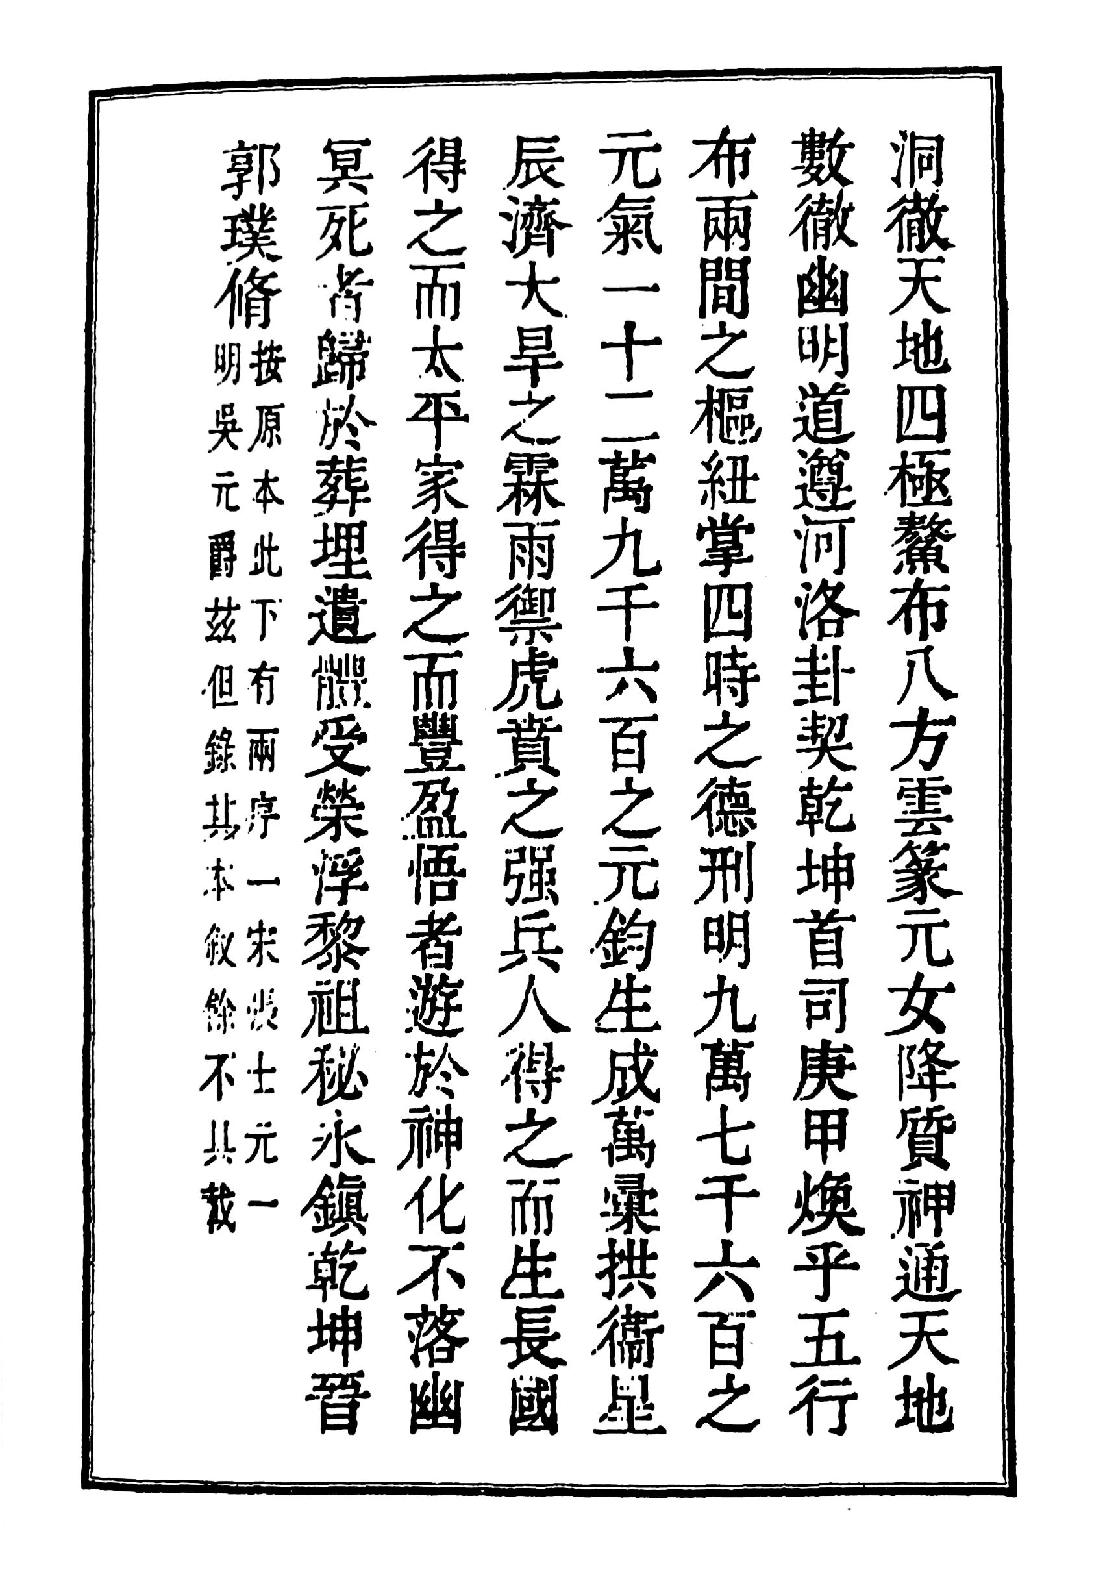 洞徹天地四極鼇布八方雲篆元女降質神通天地
數徹幽明道遵河洛卦契乾坤首司庚甲煥乎五行
布兩間之樞紐掌四時之德刑明九萬七千六百之
元氣一十二萬九千六百之元鈞生成萬彙拱衞星
辰濟大旱之霖雨禦虎賁之强兵人得之而生長國
得之而太平家得之而豐盈悟者遊於神化不落幽
冥死者歸於葬埋遺體受榮浮黎祖秘永鎭乾坤晉
郭璞脩
按原本此下有兩序一宋張士元一
明吳元爵茲但錄其本敘餘不具裁